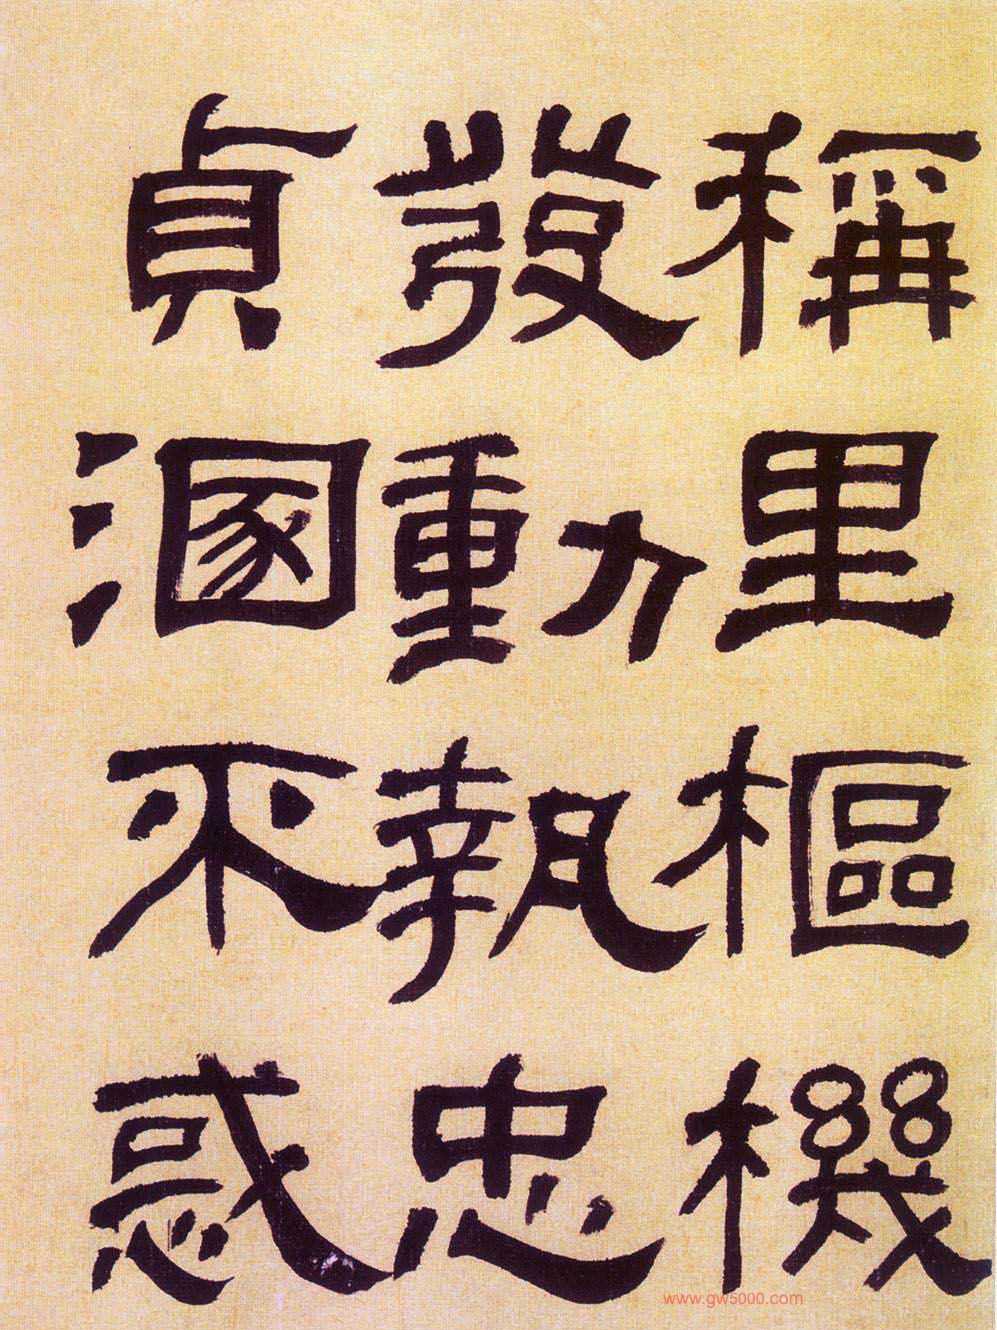 稱里樞機
發動執忠
貞圂不惑
www.gw5000.com